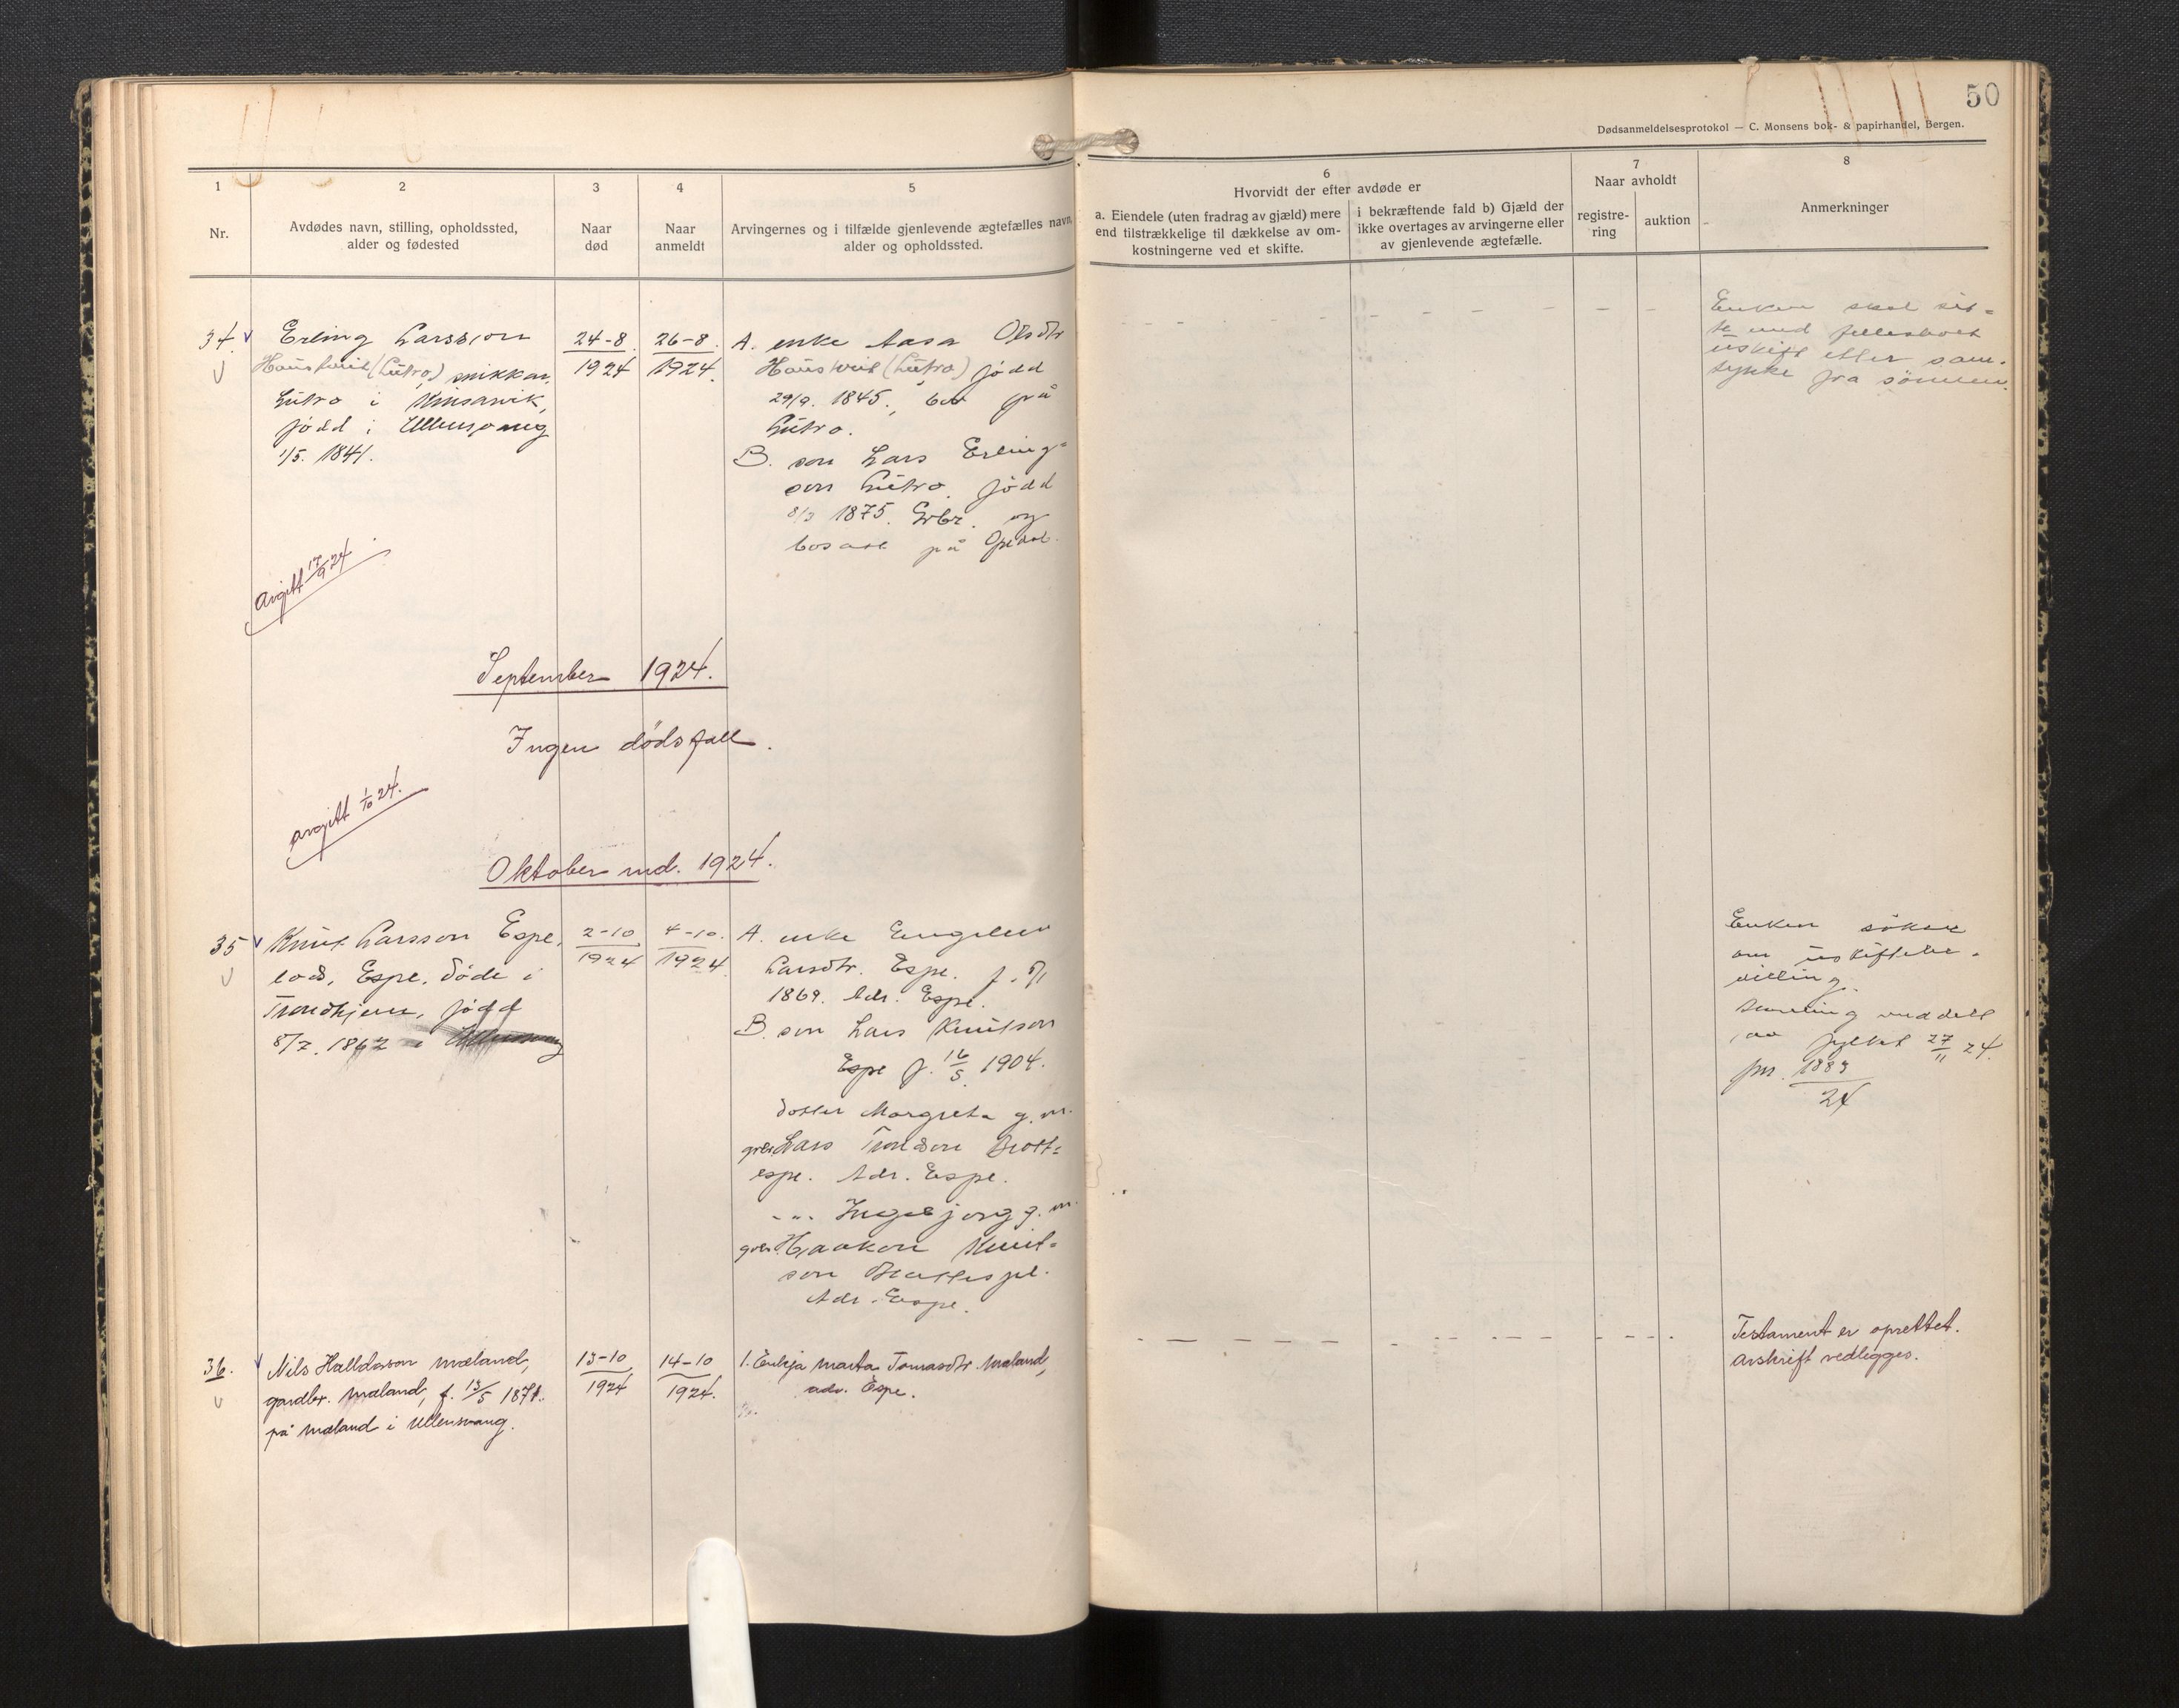 50
Dødsanmeldelsesprotokol — C. Monsens bok- & papirhandel, Bergen.
1
2
3
4
5
6
7
8
Nr.
Avdødes navn, stilling, opholdssted,
alder og fødested
Naar
død
Naar
anmeldt
Arvingernes og i tilfælde gjenlevende ægtefælles navn
alder og opholdssted.
Hvorvidt der efter avdøde er
a. Eiendele (uten fradrag av gjæld) mere
end tilstrækkelige til dækkelse av om-
kostningerne ved et skifte.
i bekræftende fald b) Gjæld der
ikke overtages av arvingerne eller
av gjenlevende ægtefælle.
Naar avholdt
registre-
ring
auktion
Anmerkninger
34.
Erling Larsson
(Lutro) snikkar,
Lutro i Kinsarvik,
född i Ullensvang
1/5. 1841.
24-8.
1924
26-8.
1924.
A. enke Aasa Olsdtr
(Lutro) född
29/9. 1845., bor på
Lutro.
B. son Lars Erling=
son Lutro, född
1875. Grbr. og
bosatt på Opedal.
Enken skal sit=
te med fellesboet
uskift etter sam.
tykke fra sönnen.
Avgitt 17/9 24
September 1924.
Ingen dödsfall.
avgitt 1/10 24.
Oktober md. 1924.
35
Knut Larsson Espe,
Espe, döde i
Trondhjem, född
8/7. 1862 i Ullensvang
2-10
1924
4-10.
1924.
A. enke Engelen
Larsdtr. Espe. f.
1869. Adr. Espe.
B. son Lars Knutson
Espe f. 16/5. 1904.
dotter Margreta g.m.
Lars Trondson Brott=
espe. Adr. Espe.
-"- Ingebjorg g.m.
Haakon Knut=
son Brattespe.
Adr. Espe.
Enken söker
om uskiftebe.
villing.
meddelt
av fylket 27/11 24.
jnr. 1883/24
36.
Nils Halldorson Mæland,
gardbr. Mæland, f. 13/5 1871.
på Mæland i Ullensvang.
13-10
1924
14-10
1924.
1. Enkja Marta Tomasdtr. Mæland,
adr. Espe.
Testament er oprettet.
Avskrift vedlegges.